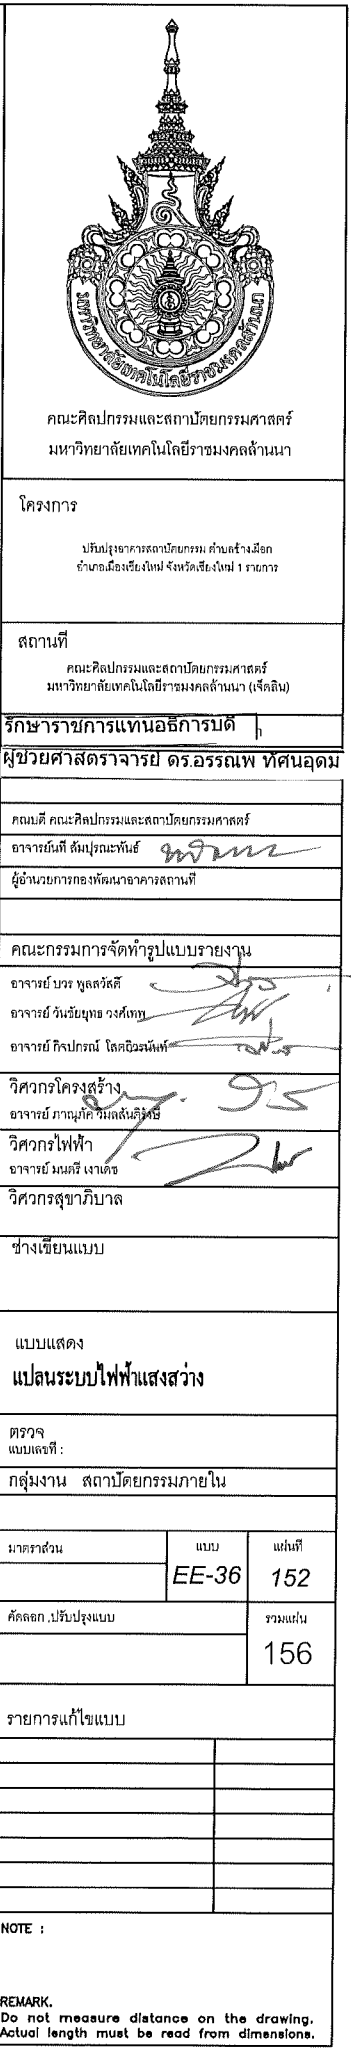 มหาวิทยาลัยเทคโนโลยีราชมงคลล้านนา
คณะศิลปกรรมและสถาปัตยกรรมศาสตร์
มหาวิทยาลัยเทคโนโลยีราชมงคลล้านนา
โครงการ
ปรับปรุงอาคารสถาปัตยกรรม ตำบลช้างเผือก
อำเภอเมืองเชียงใหม่ จังหวัดเชียงใหม่ 1 รายการ
สถานที่
คณะศิลปกรรมและสถาปัตยกรรมศาสตร์
มหาวิทยาลัยเทคโนโลยีราชมงคลล้านนา (เจ็ดลิน)
รักษาราชการแทนอธิการบดี
ผู้ช่วยศาสตราจารย์ ดร.อรรณพ ทัศนอุดม
คณบดี คณะศิลปกรรมและสถาปัตยกรรมศาสตร์
อาจารย์นที ลัมปุรณะพันธ์
ผู้อำนวยการกองพัฒนาอาคารสถานที่
คณะกรรมการจัดทำรูปแบบรายงาน
อาจารย์ บวร พูลสวัสดิ์
อาจารย์ วันชัยยุทธ วงศ์เทพ
อาจารย์ กิจปกรณ์
วิศวกรโครงสร้าง
อาจารย์ ภาณุภัค
วิศวกรไฟฟ้า
อาจารย์ มนตรี เงาเดช
วิศวกรสุขาภิบาล
ช่างเขียนแบบ
แบบแสดง
แปลนระบบไฟฟ้าแสงสว่าง
ตรวจ
แบบเลขที่ :
กลุ่มงาน สถาปัตยกรรมภายใน
มาตราส่วน แบบ แผ่นที่
EE-36 152
คัดลอก ,ปรับปรุงแบบ รวมแผ่น
156
รายการแก้ไขแบบ
NOTE :
REMARK.
Do not measure distance on the drawing.
Actual length must be read from dimensions.